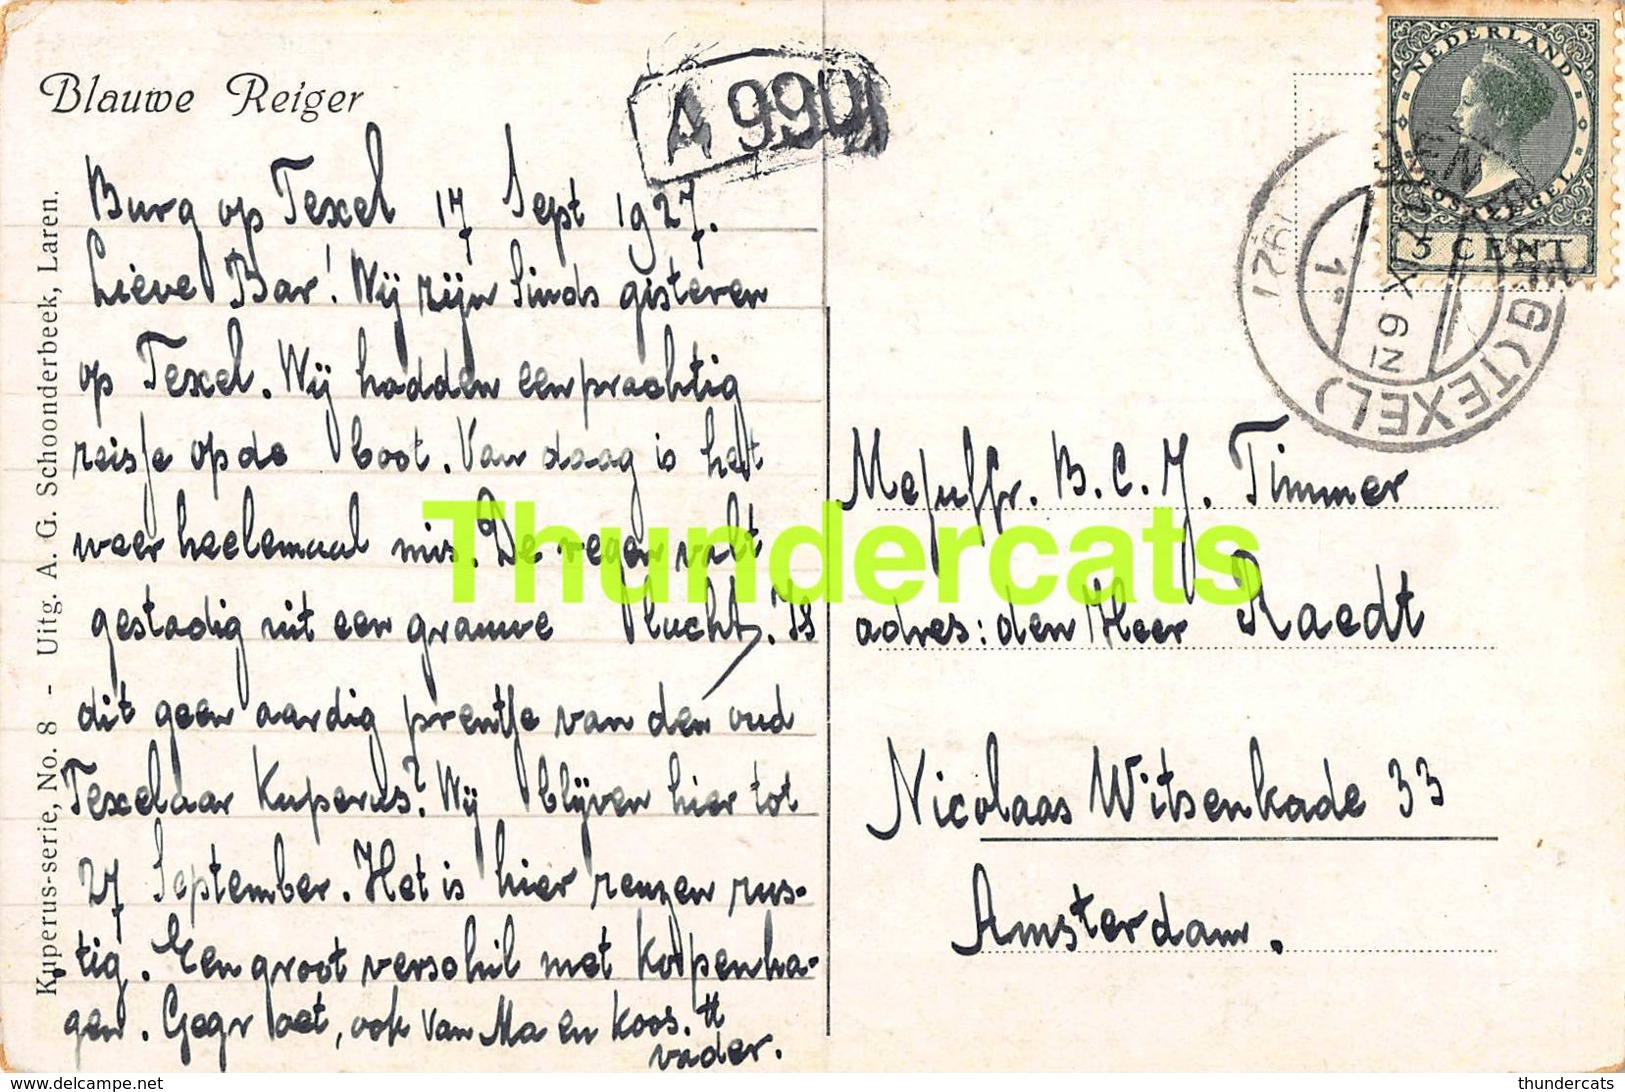 Blauwe Reiger
A 990
NEDERLAND
POSTZEGEL
5 CENT
DEN BURG (TEXEL)
1927
Kuperus-serie, No. 8 - Uitg. A. G. Schoonderbeek, Laren.
Burg op Texel 17 Sept 1927.
Lieve Bar! Wij zijn sinds gisteren
op Texel. Wij hadden een prachtig
reisje op de boot. Van daag is het
weer heelemaal mis. De regen valt
gestadig uit een grauwe lucht. Is
dit geen aardig prentje van den oud
Texelaar Kuperus? Wij blijven hier tot
27 September. Het is hier reuzen rus-
tig. Een groot verschil met Kopenha-
gen. Gegroet, ook van Ma en Koos. tt
vader.
Mejuffr. B. C. J. Timmer
adres: den Heer Raedt
Nicolaas Witsenkade 33
Amsterdam.
Thundercats
https://www.delcampe.net
thundercats